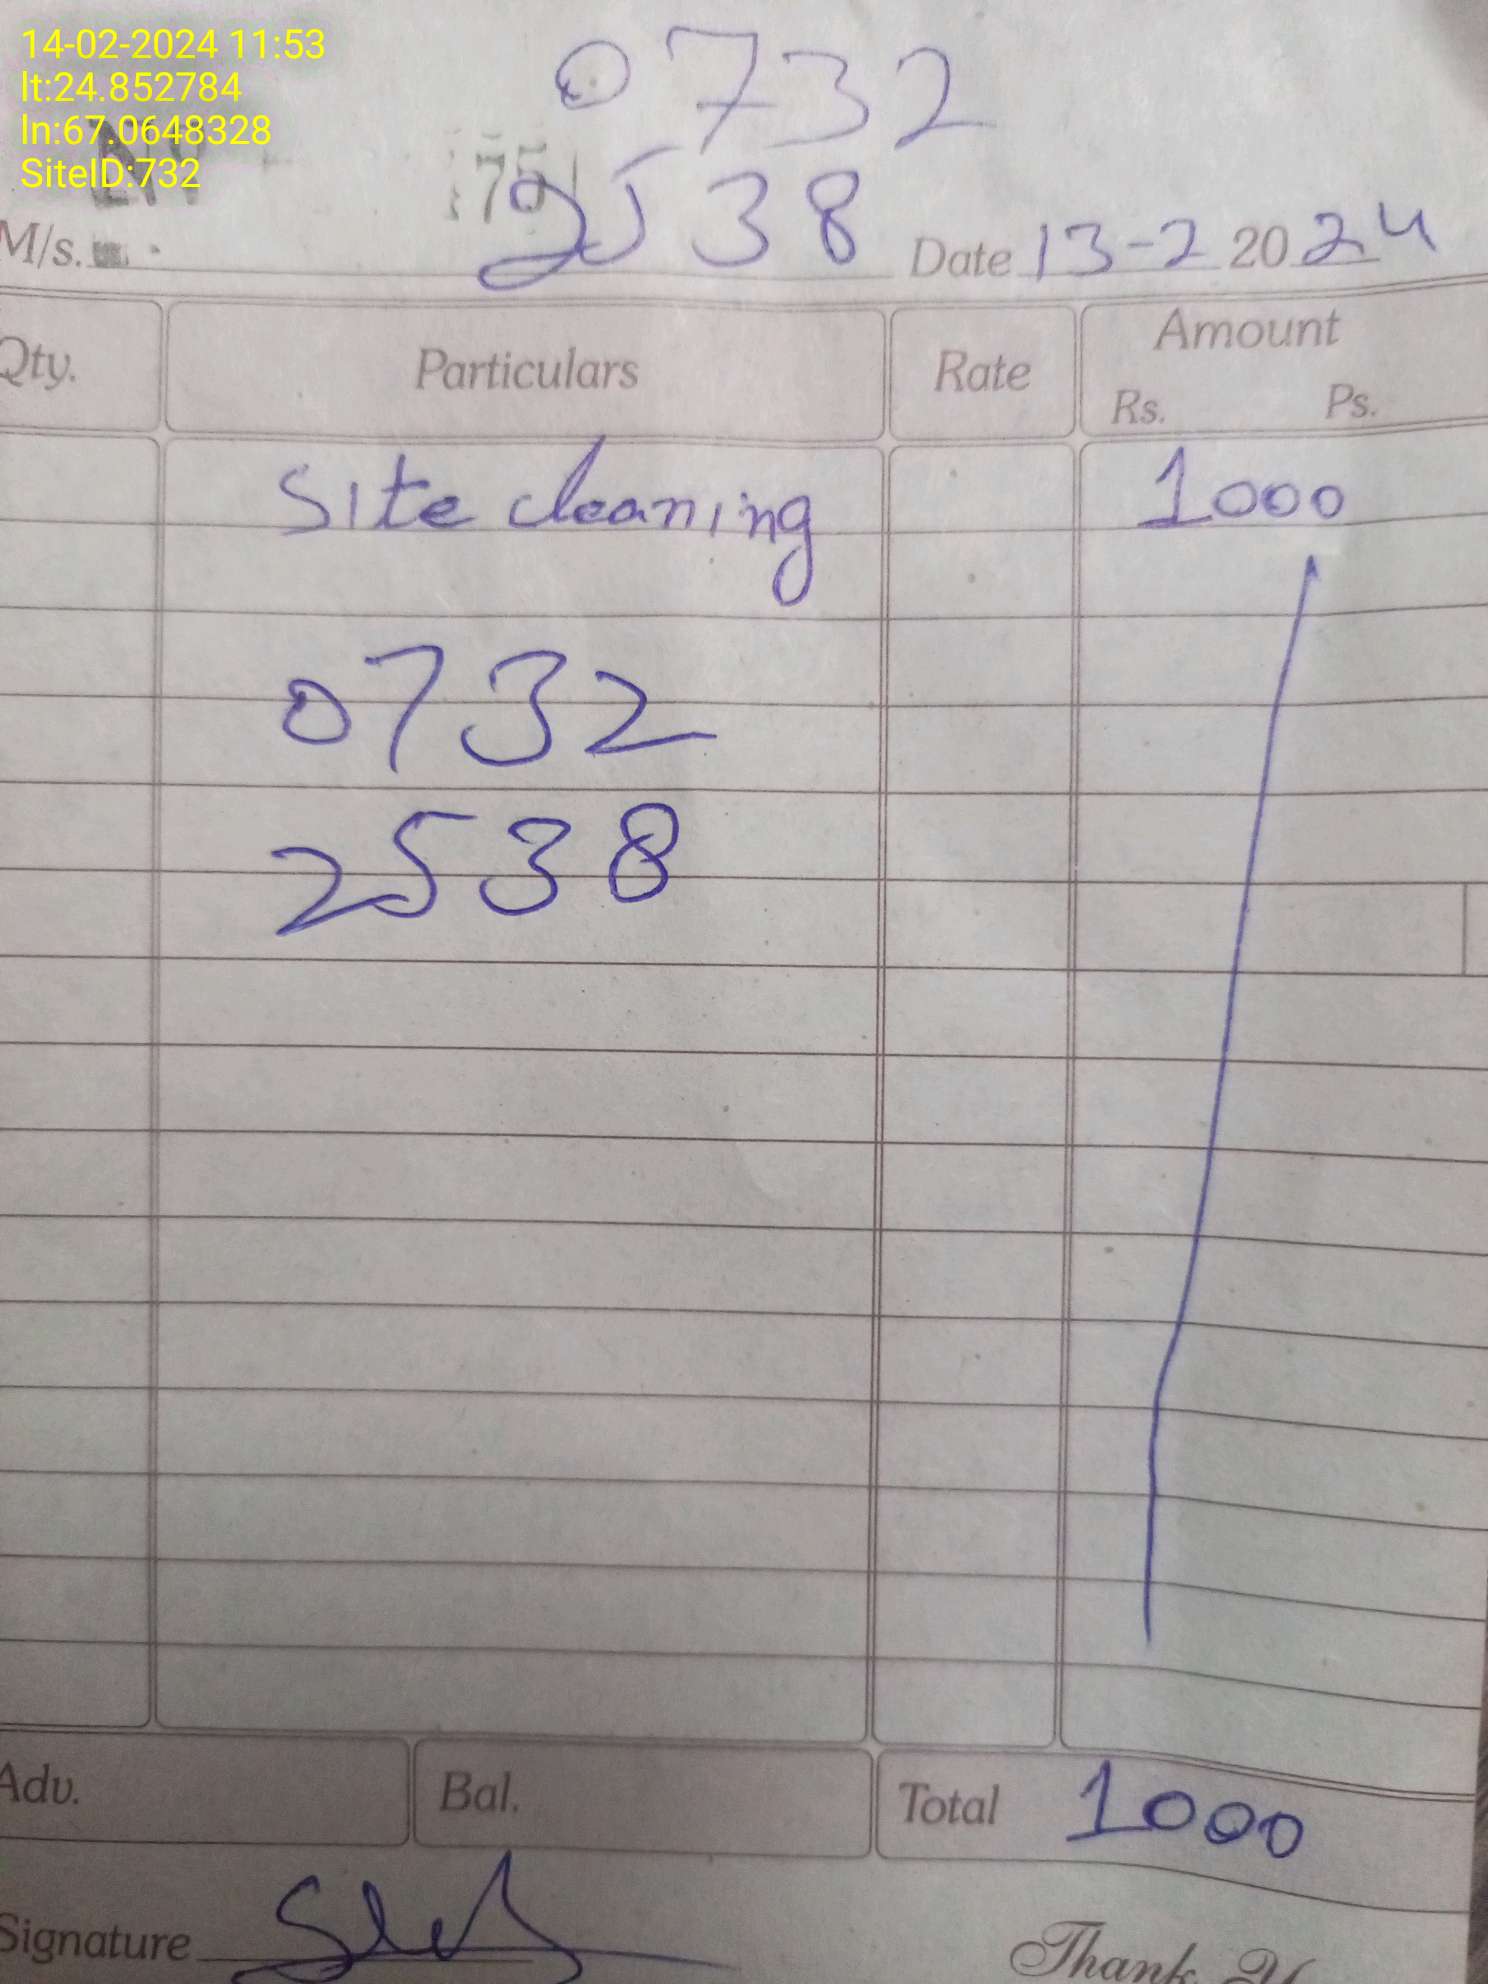 14-02-2024 11:53
lt:24.852784
ln:67.0648328
SiteID:732
0732
75
2538
M/s.
Date 13-2 2024
Qty. Particulars Rate Amount
Rs. Ps.
Site cleaning 1000
0732
2538
Adv. Bal. Total 1000
Signature
Thank